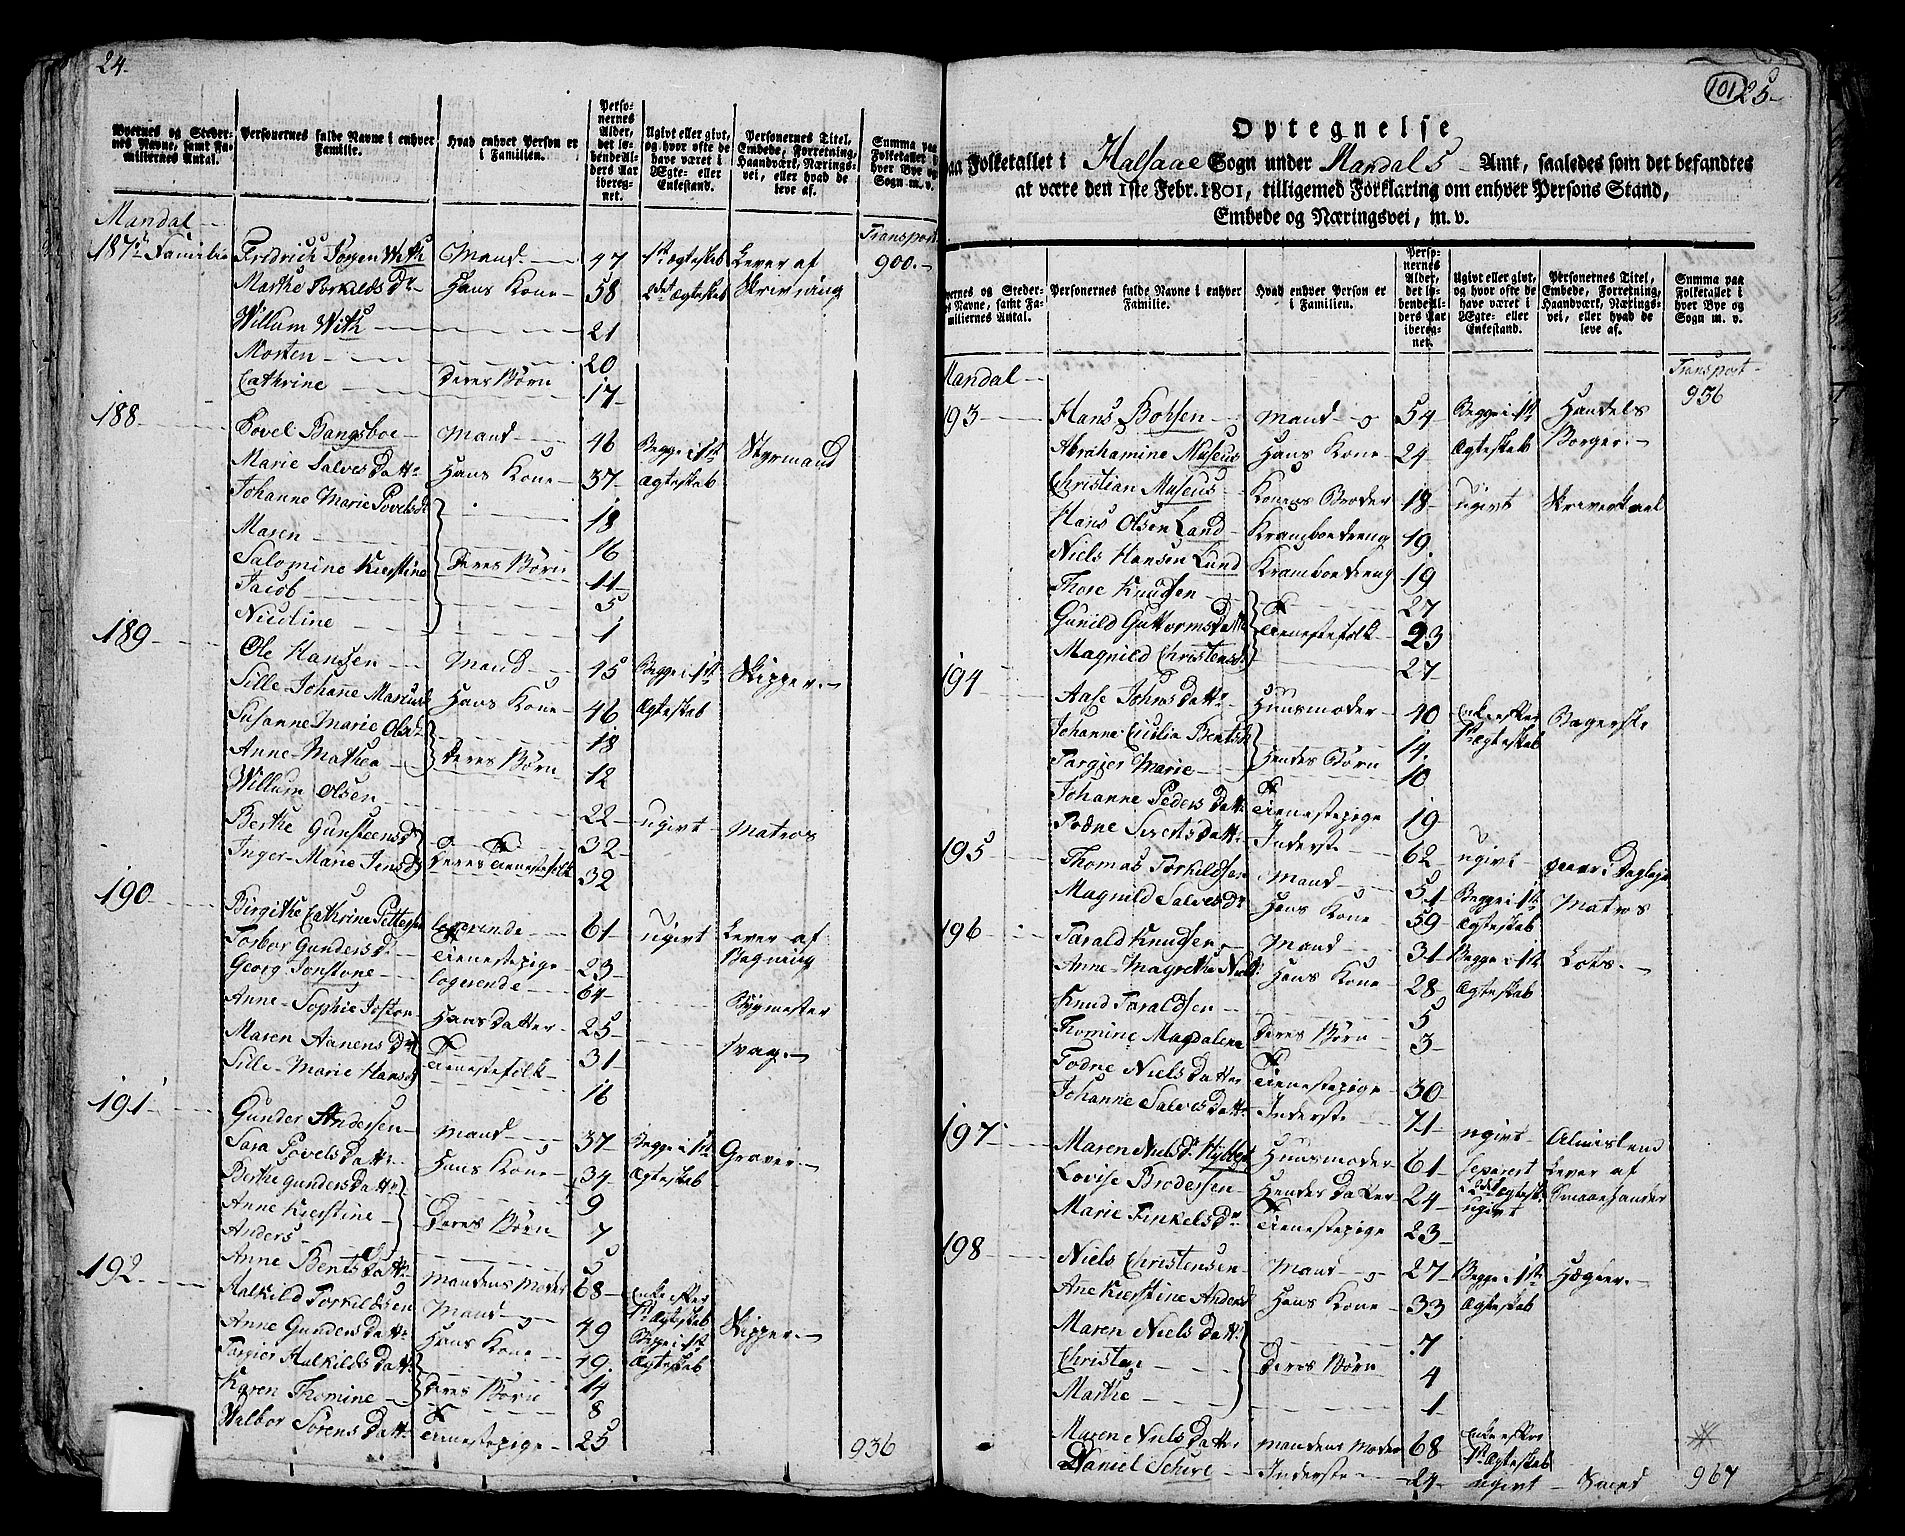 24.
Byernes og Stedernes Navne, samt Familiernes Antal. | Personernes fulde Navne i enhver Familie. | Hvad enhver Person er i Familien. | Personernes Alder, det løbende Alders Aar iberegnet. | Ugivt eller givt, og hvor ofte de have været i Ægte- eller Enkestand. | Personernes Titel, Embede, Forretning, Haandværk, Næringsvei, eller hvad de leve af. | Summa paa Folketallet i hver Bye og Sogn m. v.
Mandal | Transport
187de Familie Fredrich Jørgen With Mand 47 1ste ægteskab Lever af 900.
Marthe Torkilds Dr Hans Kone 58 2det Ægteskab Skrivning
Willum With 21
Morten 20
Cathrine Deres Børn 17
188 Povel Bangsboe Mand 46 Begge i 1ste Styrmand
Marie Salves Datter Hans Kone 37 Ægteskab
Johanne Marie Povelsdr 18
Maren 16
Salomine Kierstine Deres Børn 11
Jacob 5
Nicoline 1
189 Ole Hansen Mand 45 Begge i 1ste Skipper
Sille Johane Marcusd Hans Kone 46 Ægteskab
Susanne Marie Olsd 18
Anne Mathea Deres Børn 12
Willum Olsen 22 ugivt Matros
Berthe Gunsteensd 32
Inger Marie Jensd Deres Tienestefolk 32
190 Birgithe Cathrine Pettersen logerende 61 ugivt Lever af
Torbor Gundersd Tienestepige 23 Bagning
Georg Jonstone logerende 64 Rygmester
Anne Sophie Joston Hans datter 25
Maren Aanens Dr 31 svag
Sille Marie Hansd Tienestefolk 16
191 Gunder Andersen Mand 37 Begge i 1ste Graver
Sara Povels Datter Hans Kone 34 Ægteskab
Berthe Gunders Datter 9
Anne Kierstine Deres Børn 7
Anders 5
Anne Bents Datter Mandens Moder 68 Enke efter 1ste Ægteskab
192 Aalkild Torkildsen Mand 49 Begge i 1ste Skipper
Anne Gunders Datter Hans Kone 49. Ægteskab
Torgier Aalkilds Datter 14
Karen Thomine Deres Børn 8
Walbor Sørens Datter Tienestepige 25
936
101 25
Optegnelse
paa Folketallet i Halsaae Sogn under Mandals Amt, saaledes som det befandtes
at være den 1ste Febr. 1801, tilligemed Forklaring om enhver Persons Stand,
Embede og Næringsvei, m. v.
Byernes og Stedernes Navne, samt Familiernes Antal. | Personernes fulde Navne i enhver Familie. | Hvad enhver Person er i Familien. | Personernes Alder, det løbende Alders Aar iberegnet. | Ugivt eller givt, og hvor ofte de have været i Ægte- eller Enkestand. | Personernes Titel, Embede, Forretning, Haandværk, Næringsvei, eller hvad de leve af. | Summa paa Folketallet i hver Bye og Sogn m. v.
Mandal | Transport
936
193 Hans Bohsen Mand 54 Begge i 1ste Handels
Abrahamine Museus Hans Kone 24 Ægteskab Borger
Christian Museus Konens Broder 18 ugivt Skriverkarl
Hans Olsen Land Kramboedreng 19
Niels Hansen Lund Kramboedreng 19
Thore Knudsen 27
Gunild Guttormsdatter Tienestefolk 23
Magnild Christensd 27
194 Aase Johns Datter Huusmoder 40 Enke efter Bagerske
Johanne Cicilia Bentsd 14 1ste Ægteskab
Torgier Marie Hendes Børn 10
Johanne Peders Datter Tienestepige 19
Todne Siverts Datter Inderste 62 ugivt gaaer i Dagleje
195 Thomas Torkildsen Mand 51 Begge i 1ste Matros
Magnild Salves Dr Hans Kone 59 Ægteskab
196 Tarald Knudsen Mand 31 Begge i 1ste Lots
Anne Magrethe Niels Hans Kone 28 Ægteskab
Knud Taraldsen 5
Thomine Magdalena Deres Børn 3
Todne Niels Datter Tienestepige 30
Johanne Salves Datter Inderste 71 ugivt Almislem
197 Maren Niels Dr Kybbert Huusmoder 61 separert Lever af
Lovise Brodersen Hendes Datter 24 2det Ægtesk. Smaaehander
Marie Tinkels Dr Tienestepige 23 ugivt
198 Niels Christensen Mand 27 Begge i 1ste Høgker
Ane Kierstine Andersd Hans Kone 33 Ægteskab
Maren Niels Datter 7
Christen Deres Børn 4
Marthe 1
Maren Niels Datter Mandens Moder 68 Enke efter 1ste Ægteskab
Daniel Scheve Inderste 24 ugivt Svend 967